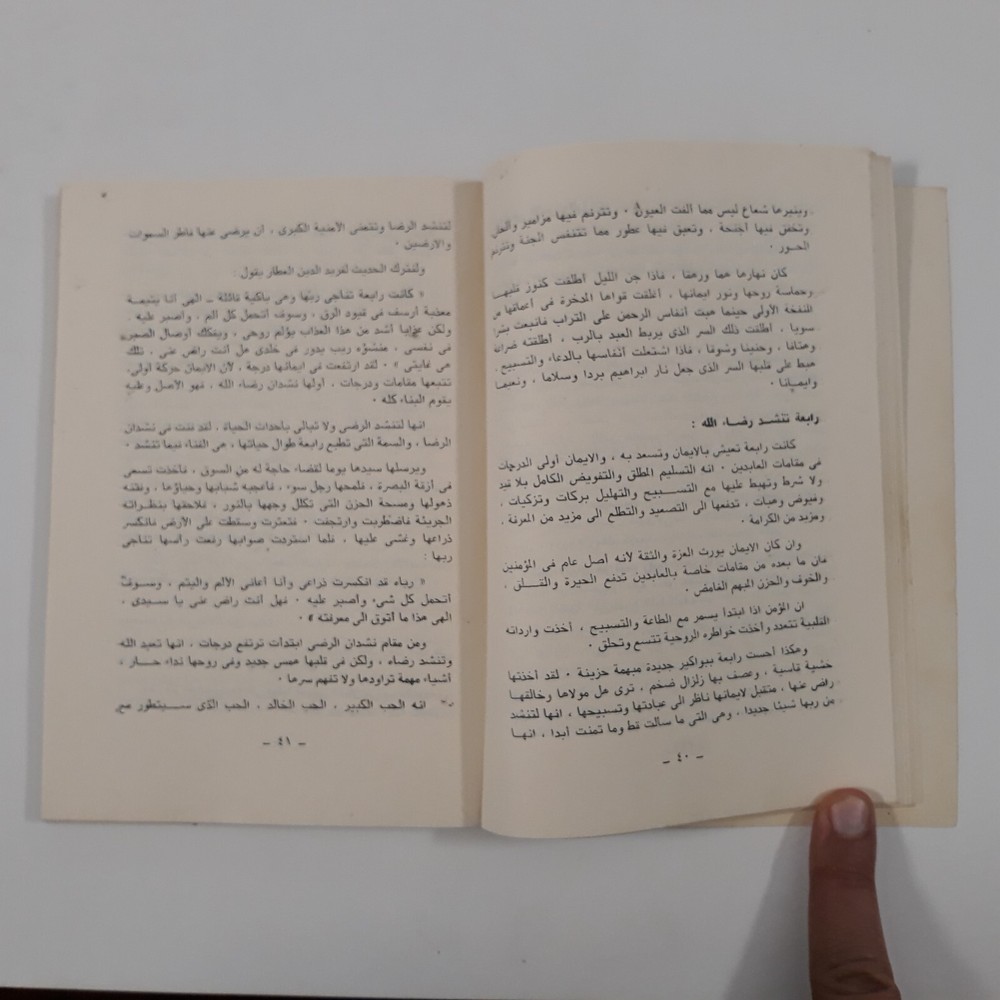 وينيرها شعاع ليس مما ألفت العيون . وتترنم فيها مزامير وألحان
وتخفق فيها أجنحة ، وتعبق فيها عطور مما تتنفس الجنة وتترنم
الحور .
كان نهارها هما ورهقا ، فاذا جن الليل أطلقت كنوز قلبها
وحماسة روحها ونور ايمانها ، أغلقت قواها المدخرة فى أعماقها من
النفخة الأولى حينما هبت أنفاس الرحمن على التراب فانبعث بشرا
سويا . أطلقت ذلك السر الذى يربط العبد بالرب ، أطلقته ضراعة
وهتافا ، وحنينا وشوقا ؛ فاذا اشتعلت أنفاسها بالدعاء والتسبيح ،
هبط على قلبها السر الذى جعل نار ابراهيم بردا وسلاما ، ونعيما
وايمانا .
رابعة تنشد رضاء الله :
كانت رابعة تعيش بالايمان وتسعد به ، والايمان أولى الدرجات
فى مقامات العابدين . انه التسليم المطلق والتفويض الكامل بلا قيد
ولا شرط وتهبط عليها مع التســبيح والتهليل بركات وتزكيات ،
وفيوض وهبات ، تدفعها الى التصعيد والتطلع الى مزيد من المعرفة .
ومزيد من الكرامة .
وان كان الايمان يورث العزة والثقة لأنه أصل عام فى المؤمنين
فان ما بعده من مقامات خاصة بالعابدين تدفع الحيرة والقــلق ،
والخوف والحزن المبهم الغامض .
ان المؤمن اذا ابتدأ يسمر مع الطاعة والتسبيح ، أخذت وارداته
القلبية تتعدد وأخذت خواطره الروحية تتسع وتحلق .
وهكذا أحست رابعة ببواكير جديدة مبهمة حزينة . لقد أخذتها
خشية قاسية ، وعصف بها زلزال ضخم . ترى هل مولاها وخالقها
راض عنها . متقبل لايمانها ناظر الى عبادتها وتسبيحها ، انها لتنشد
من ربها شيئا جديدا . وهى التى ما سألت قط وما تمنت أبدا ، انها
– ٤٠ –
لتنشد الرضا وتتمنى الأمنية الكبرى ، أن يرضى عنها فاطر السموات
والأرضين .
ولنترك الحديث لفريد الدين العطار يقول :
« كانت رابعة تناجى ربها وهى باكية قائلة ــ الهى أنا يتيمة
معذبة أرسف فى قيود الرق ، وسوف أتحمل كل ألم . وأصبر عليه .
ولكن عذابا أشد من هذا العذاب يؤلم روحى ، ويفكك أوصال الصبر
فى نفسى . منشؤه ريب يدور فى خلدى هل أنت راض عنى . تلك
هى غايتى » . لقد ارتفعت فى ايمانها درجة ، لأن الايمان حركة أولى.
تتبعها مقامات ودرجات . أولها نشدان رضاء الله . فهو الأصل وعليه
يقوم البناء كله .
انها لتنشد الرضى ولا تبالى بأحداث الحياة . لقد فنت فى نشدان
الرضا ، والسمة التى تطبع رابعة طوال حياتها ، هى الفناء فيما تنشد .
ويرسلها سيدها يوما لقضاء حاجة له من السوق ، فأخذت تسعى
فى أزقة البصرة ، فلمحها رجل سوء . فأعجبه شبابها وحياؤها . وفتنه
ذهولها ومسحة الحزن التى تكلل وجهها بالنور ، فلاحقها بنظراته
الجريئة فاضطربت وارتجفت . فتعثرت وسقطت على الأرض فانكسر
ذراعها وغشى عليها ، فلما استردت صوابها رفعت رأسها تناجى
ربها :
« رباه قد انكسرت ذراعى وأنا أعانى الألم واليتم ، وســوف
أتحمل كل شىء وأصبر عليه . فهل أنت راض عنى يا سيدى .
الهى هذا ما أتوق الى معرفته » .
ومن مقام نشدان الرضى ابتدأت ترتفع درجات . انها تعبد الله
وتنشد رضاه ، ولكن فى قلبها همس جديد وفى روحها نداء حــار ،
أشياء مهمة تراودها ولا تفهم سرها .
انه الحب الكبير . الحب الخالد . الحب الذى ســيتطور مع
– ٤١ –